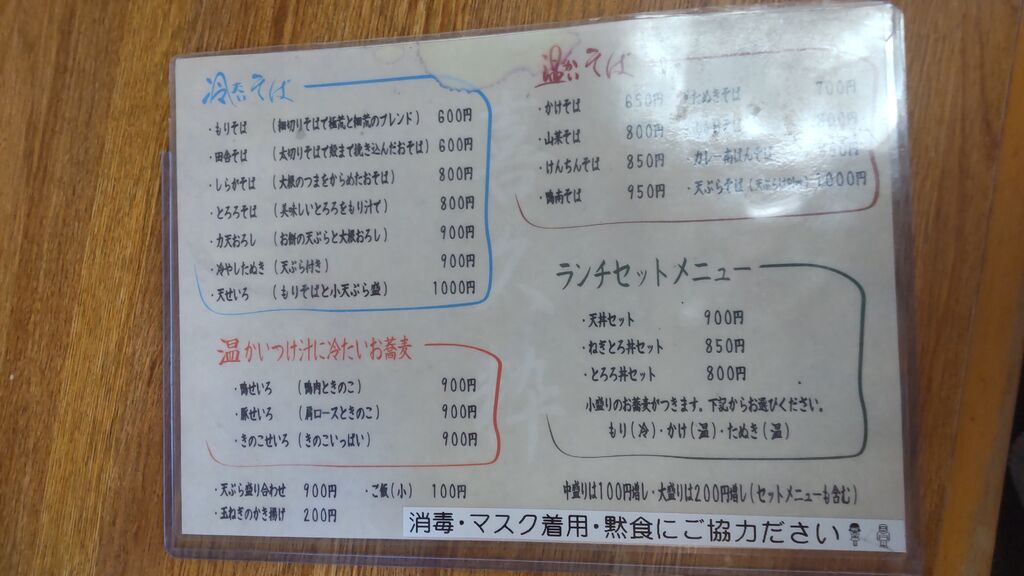 冷たいそば
・もりそば （細切りそばで極荒と細荒のブレンド） 600円
・田舎そば （太切りそばで殻まで挽き込んだおそば） 600円
・しらがそば （大根のつまをからめたおそば） 800円
・とろろそば （美味しいとろろをもり汁で） 800円
・力天おろし （お餅の天ぷらと大根おろし） 900円
・冷やしたぬき （天ぷら付き） 900円
・天せいろ （もりそばと小天ぷら盛） 1000円
温かいつけ汁に冷たいお蕎麦
・鴨せいろ （鴨肉ときのこ） 900円
・豚せいろ （肩ロースときのこ） 900円
・きのこせいろ （きのこいっぱい） 900円
・天ぷら盛り合わせ 900円 ・ご飯（小） 100円
・玉ねぎのかき揚げ 200円
温かいそば
・かけそば 650円 ・たぬきそば 700円
・山菜そば 800円
・けんちんそば 850円 ・カレー南ばんそば
・鴨南そば 950円 ・天ぷらそば 1000円
ランチセットメニュー
・天丼セット 900円
・ねぎとろ丼セット 850円
・とろろ丼セット 800円
小盛りのお蕎麦がつきます。下記からお選びください。
もり（冷）・かけ（温）・たぬき（温）
中盛りは100円増し・大盛りは200円増し（セットメニューも含む）
消毒・マスク着用・黙食にご協力ださい